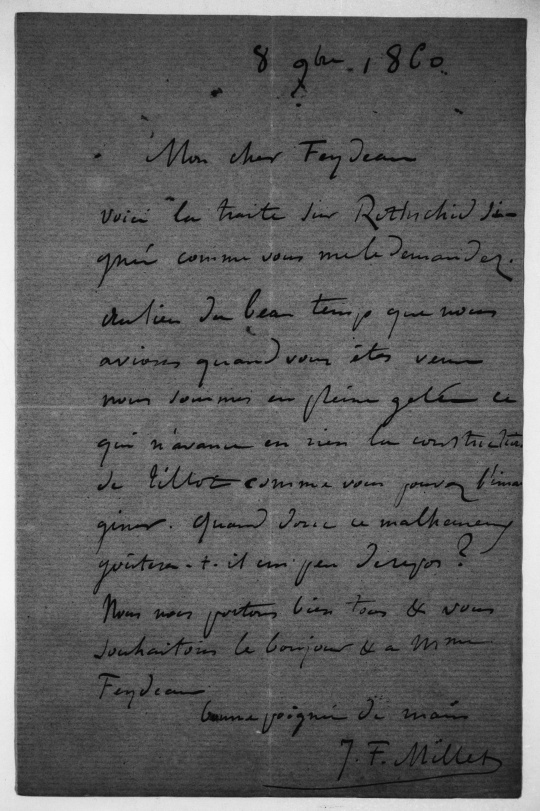 8 9bre. 1860.
Mon cher Feydeau
voici la traite sur Rothschild si-
gnée comme vous me le demandez.
Au lieu du beau temps que nous
avions quand vous êtes venu
nous sommes en pleine gelée ce
qui n'avance en rien la construction
de Tillot comme vous pouvez l'ima
giner. Quand donc ce malheureux
goûtera-t-il un peu de repos?
Nous nous portons bien tous & vous
souhaitons le bonjour & a Mme
Feydeau
bonne poignée de main
J. F. Millet